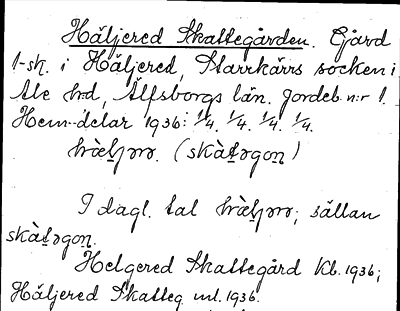 Häljered Skattegården. Gård
1-sk. i Häljered, Starrkärrs socken i
Ale hrd, Älfsborgs län. Jordeb. n:r 1.
Hem.-delar 1936: 1/4. 1/4. 1/4. 1/4.
(skàt̲əgon̲)
I dagl. tal ; sällan
skàt̲əgon̲.
Helgered Skattegård Kb. 1936;
Häljered Skatteg. ml. 1936.